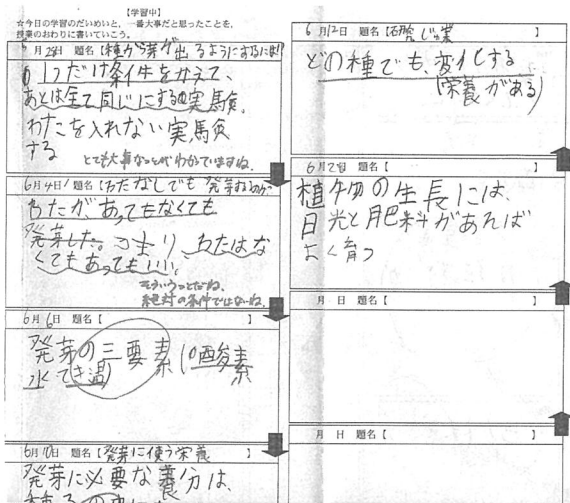 【学習中】
☆今日の学習のだいめいと、一番大事だと思ったことを、
授業のおわりに書いていこう。
月28日 題名【種から芽が出るようにするには!】
1つだけ条件をかえて、
あとは全て同じにする実験。
わたを入れない実験
する
とても大事なことがわかっていますね。
6月4日 題名【わたなしでも発芽するのか
わたが、あってもなくても
発芽した。つまり、わたはな
くてもあってもいい。
そういうことだね。
絶対の条件ではないね。
6月6日 題名【
発芽の三要素(酸素
水てき温)
6月10日 題名【発芽に使う栄養
発芽に必要な養分は、
6月12日 題名【研究授業
どの種でも、変化する
(栄養がある)
6月2日 題名【
植物の生長には、
日光と肥料があれば
よく育つ
月 日 題名【 】
月 日 題名【 】